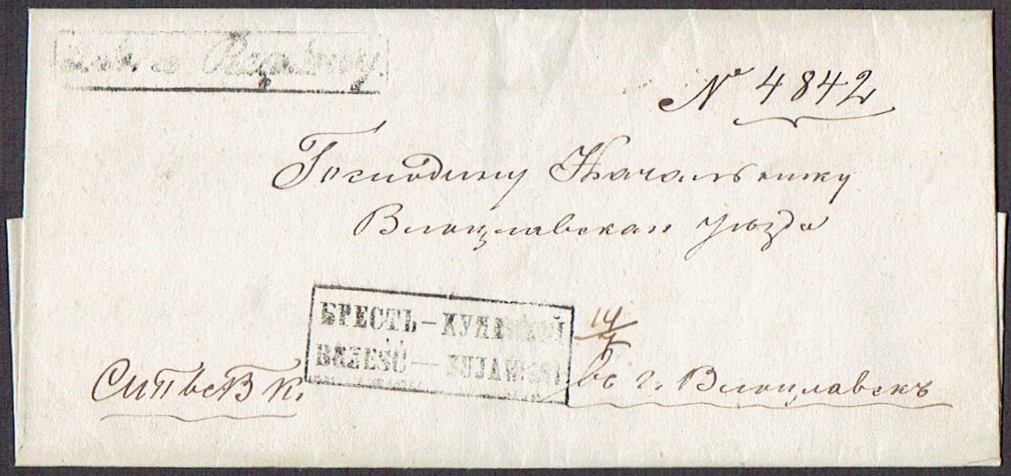 № 4842
Господину Начальнику
Влоцлавскаго уѣзда
БРЕСТЪ — КУЯВСКОЙ
BRZEŚĆ — KUJAWSKI
14/
въ г. Влоцлавскъ